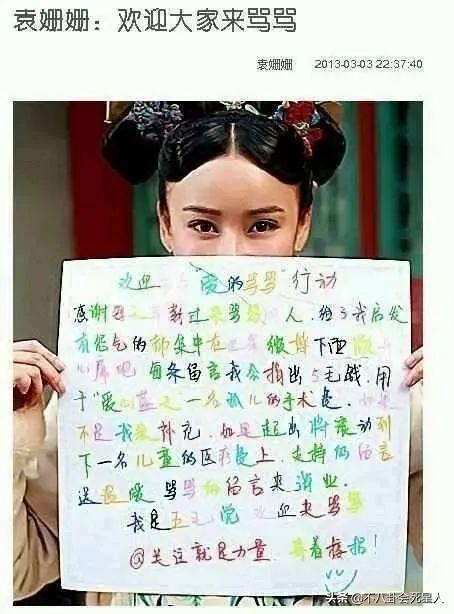 袁姗姗：欢迎大家来骂骂
袁姗姗 2013-03-03 22:37:40
欢迎 "爱的骂骂"行动
感谢 过 骂 人，给了我启发
有怨气的都集中在 微博下面
心 吧 每条留言我会捐出5毛钱，用
于"爱心 "一名孤儿的手术费，如果
不足我来补充，如果超出将滚动到
下一名儿童的医疗费上，支持的留言
送 骂骂的留言来消业，
我是五毛党 欢迎来骂骂
@关注就是力量 等着接招！
头条@不八卦会死星人